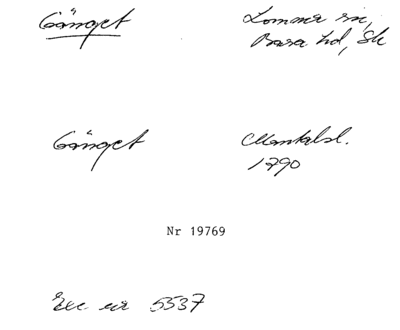 Gånget
Lomma sn,
Bara hd, Sk
Gånget
Mantalsl.
1790
Nr 19769
Exc nr 5537